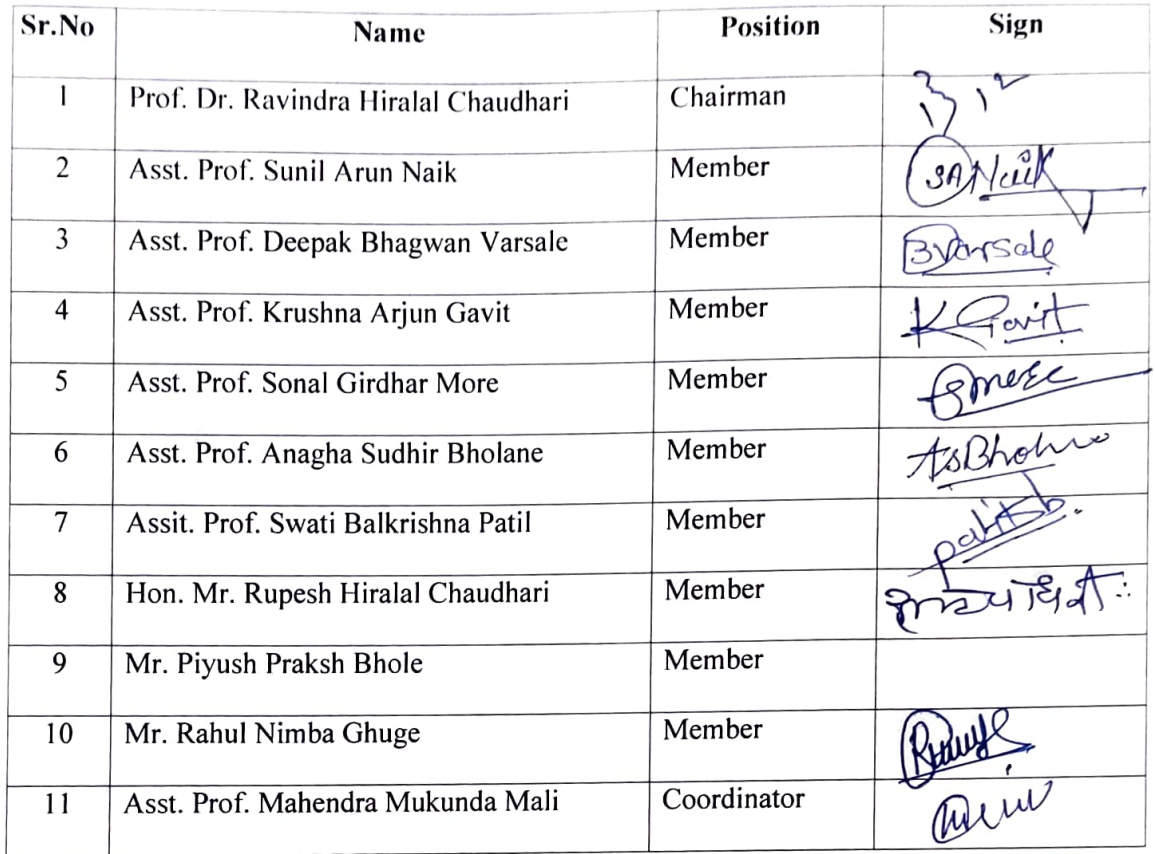 Sr.No Name Position Sign
1 Prof. Dr. Ravindra Hiralal Chaudhari Chairman
2 Asst. Prof. Sunil Arun Naik Member SANaik
3 Asst. Prof. Deepak Bhagwan Varsale Member BVarsale
4 Asst. Prof. Krushna Arjun Gavit Member K Gavit
5 Asst. Prof. Sonal Girdhar More Member Smore
6 Asst. Prof. Anagha Sudhir Bholane Member ASBholane
7 Assit. Prof. Swati Balkrishna Patil Member patilsb.
8 Hon. Mr. Rupesh Hiralal Chaudhari Member
9 Mr. Piyush Praksh Bhole Member
10 Mr. Rahul Nimba Ghuge Member
11 Asst. Prof. Mahendra Mukunda Mali Coordinator